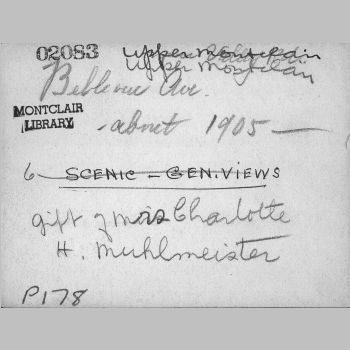 02083 Upper Montclair
Upper Montclair
Bellevue Ave.
MONTCLAIR
LIBRARY
- about 1905 -
6 - SCENIC - GEN. VIEWS
gift of Miss Charlotte
H. Muhlmeister
P178